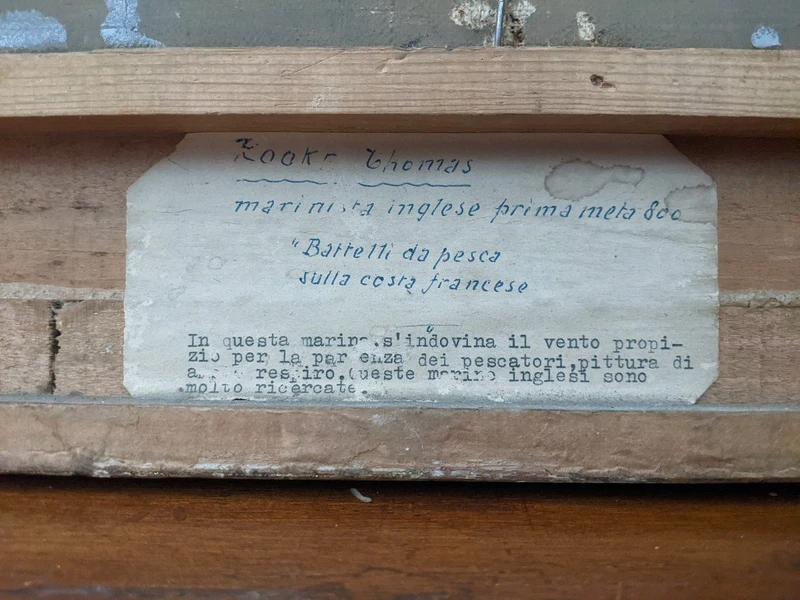 Thomas
marinista inglese prima metà 800
"Battelli da pesca
sulla costa francese
"
In questa marina,s'indovina il vento propi-
zio per la partenza dei pescatori,pittura di
respiro.Queste marine inglesi sono
molto ricercate.